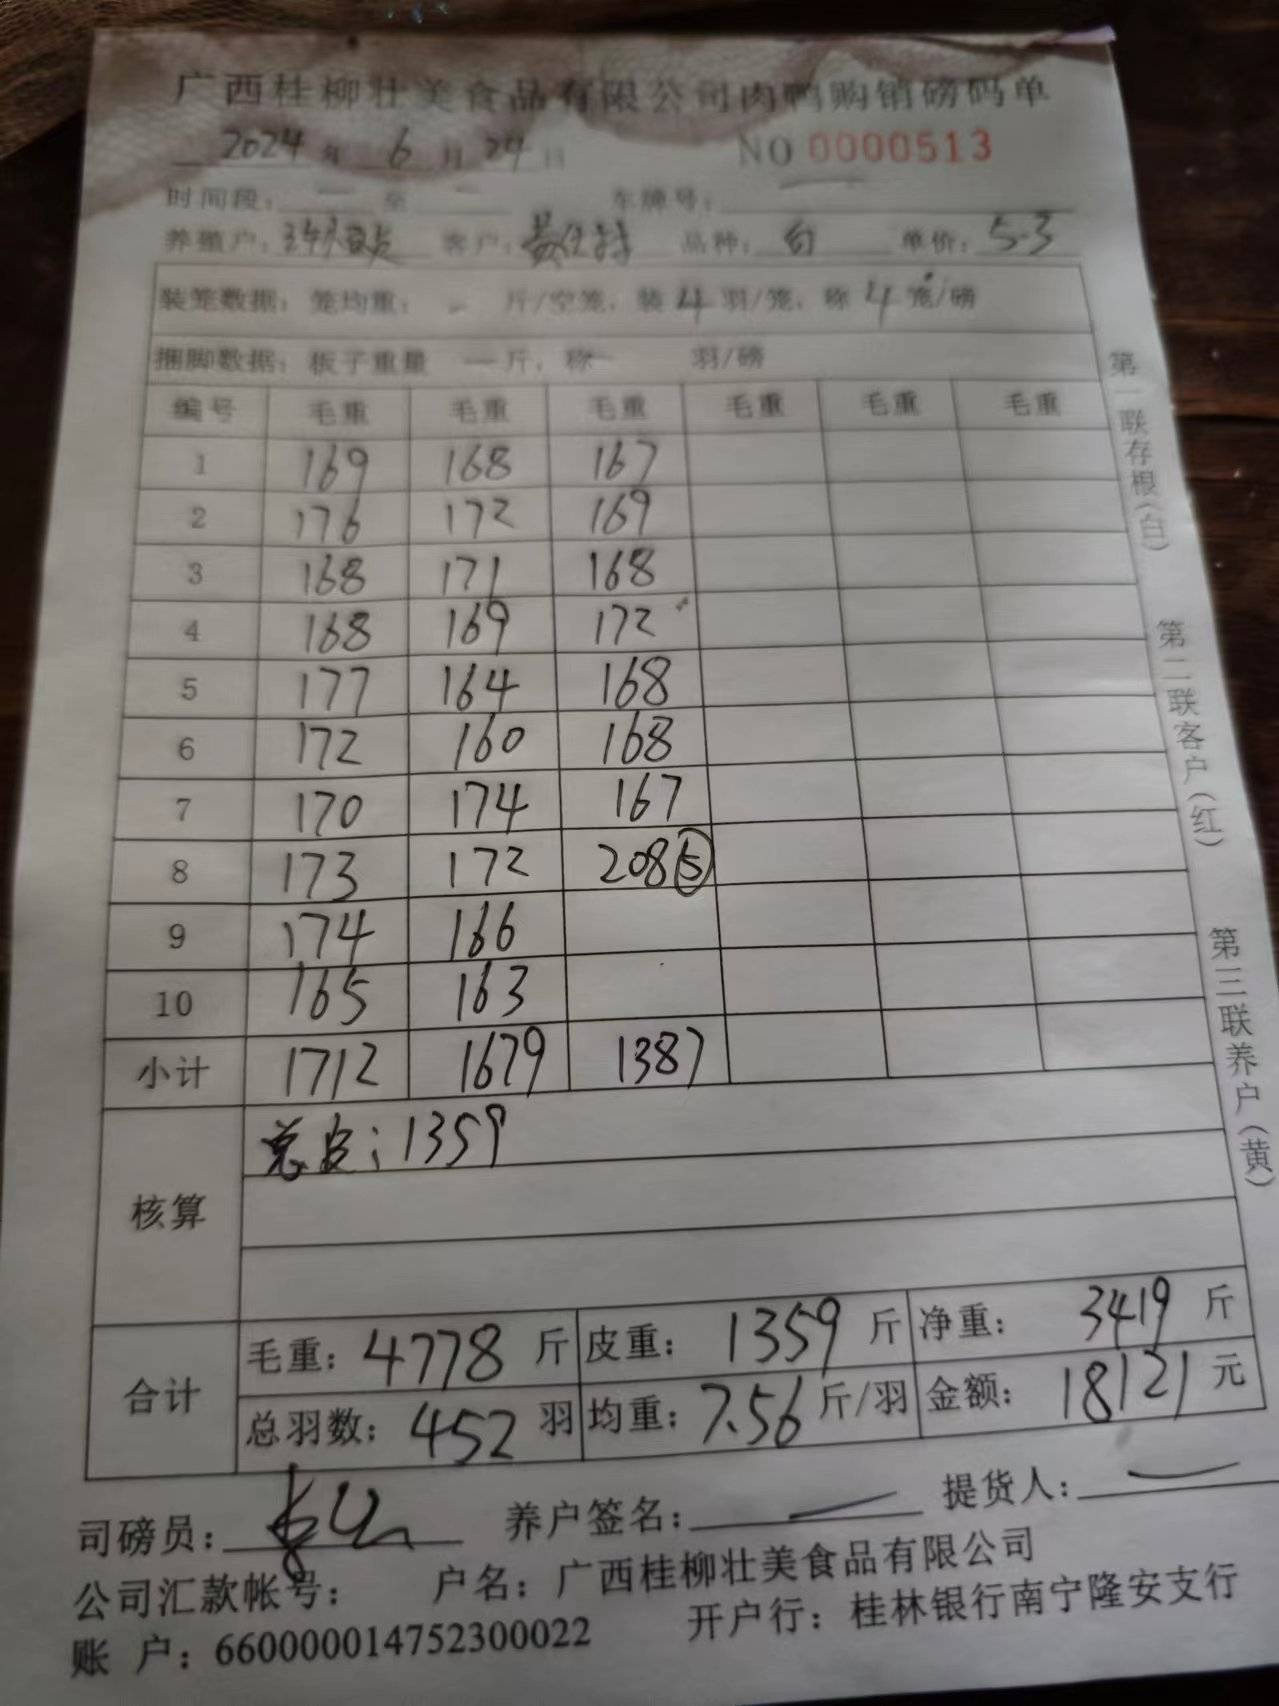 广西桂柳壮美食品有限公司肉鸭购销磅码单
2024 年 6 月 24 日 NO 0000513
时间段： — 至 — 车牌号： —
养殖户： 客户： 品种：白 单价：5.3
装笼数据：笼均重： - 斤/空笼，装 4 羽/笼，称 4 笼/磅
捆脚数据：板子重量 — 斤，称 — 羽/磅
编号 毛重 毛重 毛重 毛重 毛重 毛重
1 169 168 167
2 176 172 169
3 168 171 168
4 168 169 172
5 177 164 168
6 172 160 168
7 170 174 167
8 173 172 208 ⑤
9 174 166
10 165 163
小计 1712 1679 1387
核算 总皮：1359
合计 毛重：4778 斤 皮重：1359 斤 净重：3419 斤
总羽数：452 羽 均重：7.56 斤/羽 金额：18121 元
司磅员： 养户签名： — 提货人： —
公司汇款帐号： 户名：广西桂柳壮美食品有限公司
账 户：660000014752300022 开户行：桂林银行南宁隆安支行
第一联存根（白）
第二联客户（红）
第三联养户（黄）